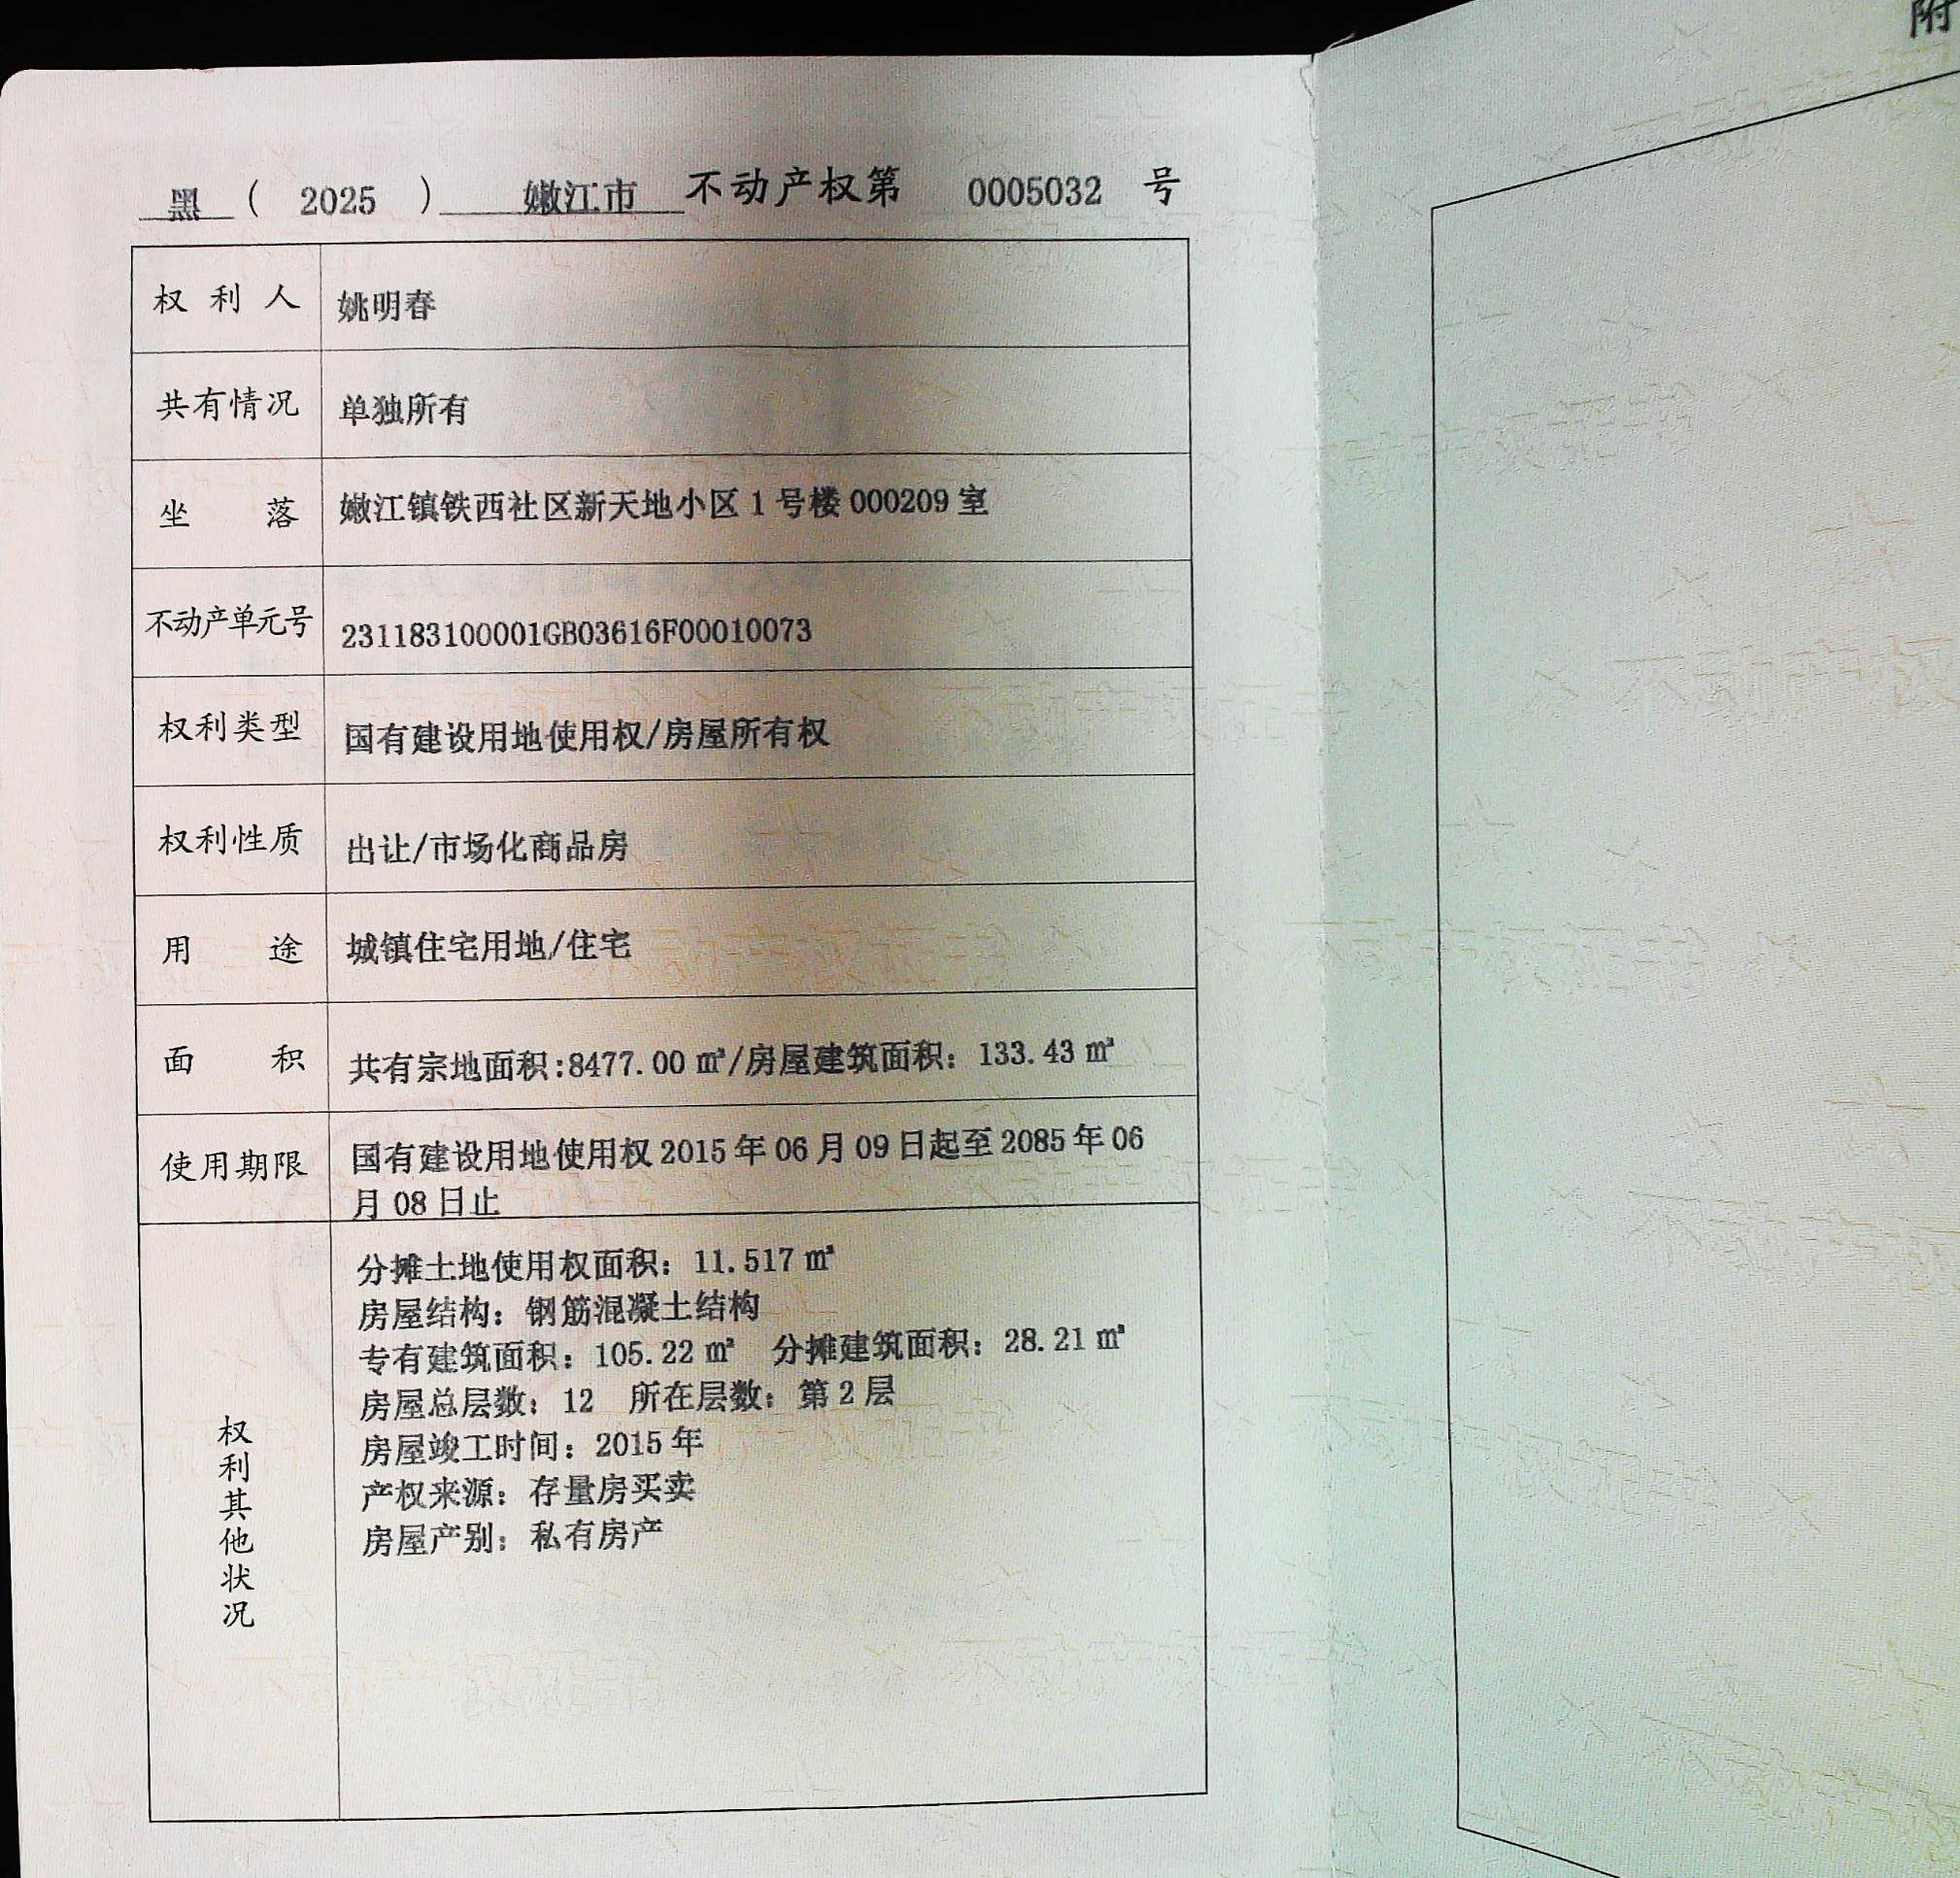 附
黑 ( 2025 ) 嫩江市 不动产权第 0005032 号
权利人 姚明春
共有情况 单独所有
坐落 嫩江镇铁西社区新天地小区1号楼000209室
不动产单元号 231183100001GB03616F00010073
权利类型 国有建设用地使用权/房屋所有权
权利性质 出让/市场化商品房
用途 城镇住宅用地/住宅
面积 共有宗地面积:8477.00㎡/房屋建筑面积：133.43㎡
使用期限 国有建设用地使用权2015年06月09日起至2085年06
月08日止
权利其他状况
分摊土地使用权面积：11.517㎡
房屋结构：钢筋混凝土结构
专有建筑面积：105.22㎡ 分摊建筑面积：28.21㎡
房屋总层数：12 所在层数：第2层
房屋竣工时间：2015年
产权来源：存量房买卖
房屋产别：私有房产